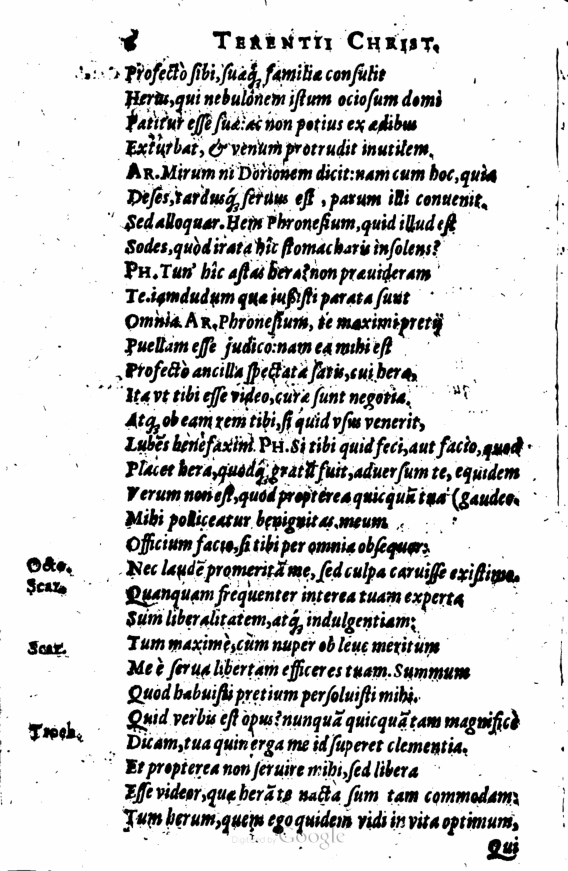 TERENTII CHRIST.
Profectò sibi, suaq́; familiæ consulit
Herus, qui nebulonem istum ociosum domi
Patitur esse suæ: ac non potius ex ædibus
Exturbat, & venum protrudit inutilem.
AR. Mirum ni Dorionem dicit: nam cum hoc, quia
Deses, tardusq́; seruus est, parum illi conuenit.
Sed alloquar. Hem Phronesium, quid illud est
Sodes, quòd irata hîc stomacharis insolens?
PH. Tun' hîc astas hera? non præuideram
Te. iamdudum quæ iussisti parata sunt
Omnia. AR. Phronesium, te maximi pretij
Puellam esse judico: nam ea mihi est
Profectò ancilla spectata satis, cui hera,
Ita vt tibi esse video, curæ sunt negotia.
Atq́; ob eam rem tibi, si quid vsus venerit,
Lubẽs benefaxim. PH. Si tibi quid feci, aut facio, quod
Placet hera, quodq́; gratũ fuit, aduersum te, equidem
Verum non est, quòd propterea quicquã tua (gaudeo.
Mihi polliceatur benignitas. meum
Officium facio, si tibi per omnia obsequor:
Octo. Nec laudẽ promeritã me, sed culpa caruisse existimo.
Scaz. Quanquam frequenter interea tuam experta
Sum liberalitatem, atq́; indulgentiam:
Scaz. Tum maximè, cùm nuper ob leue meritum
Me è serua libertam efficeres tuam. Summum
Quod habuisti pretium persoluisti mihi.
Quid verbis est opus? nunquã quicquã tam magnificè
Troch. Dicam, tua quin erga me id superet clementia.
Et propterea non seruire mihi, sed libera
Esse videor, quæ herã te nacta sum tam commodam:
Tum herum, quem ego quidem vidi in vita optimum,
Digitized by Google
Qui